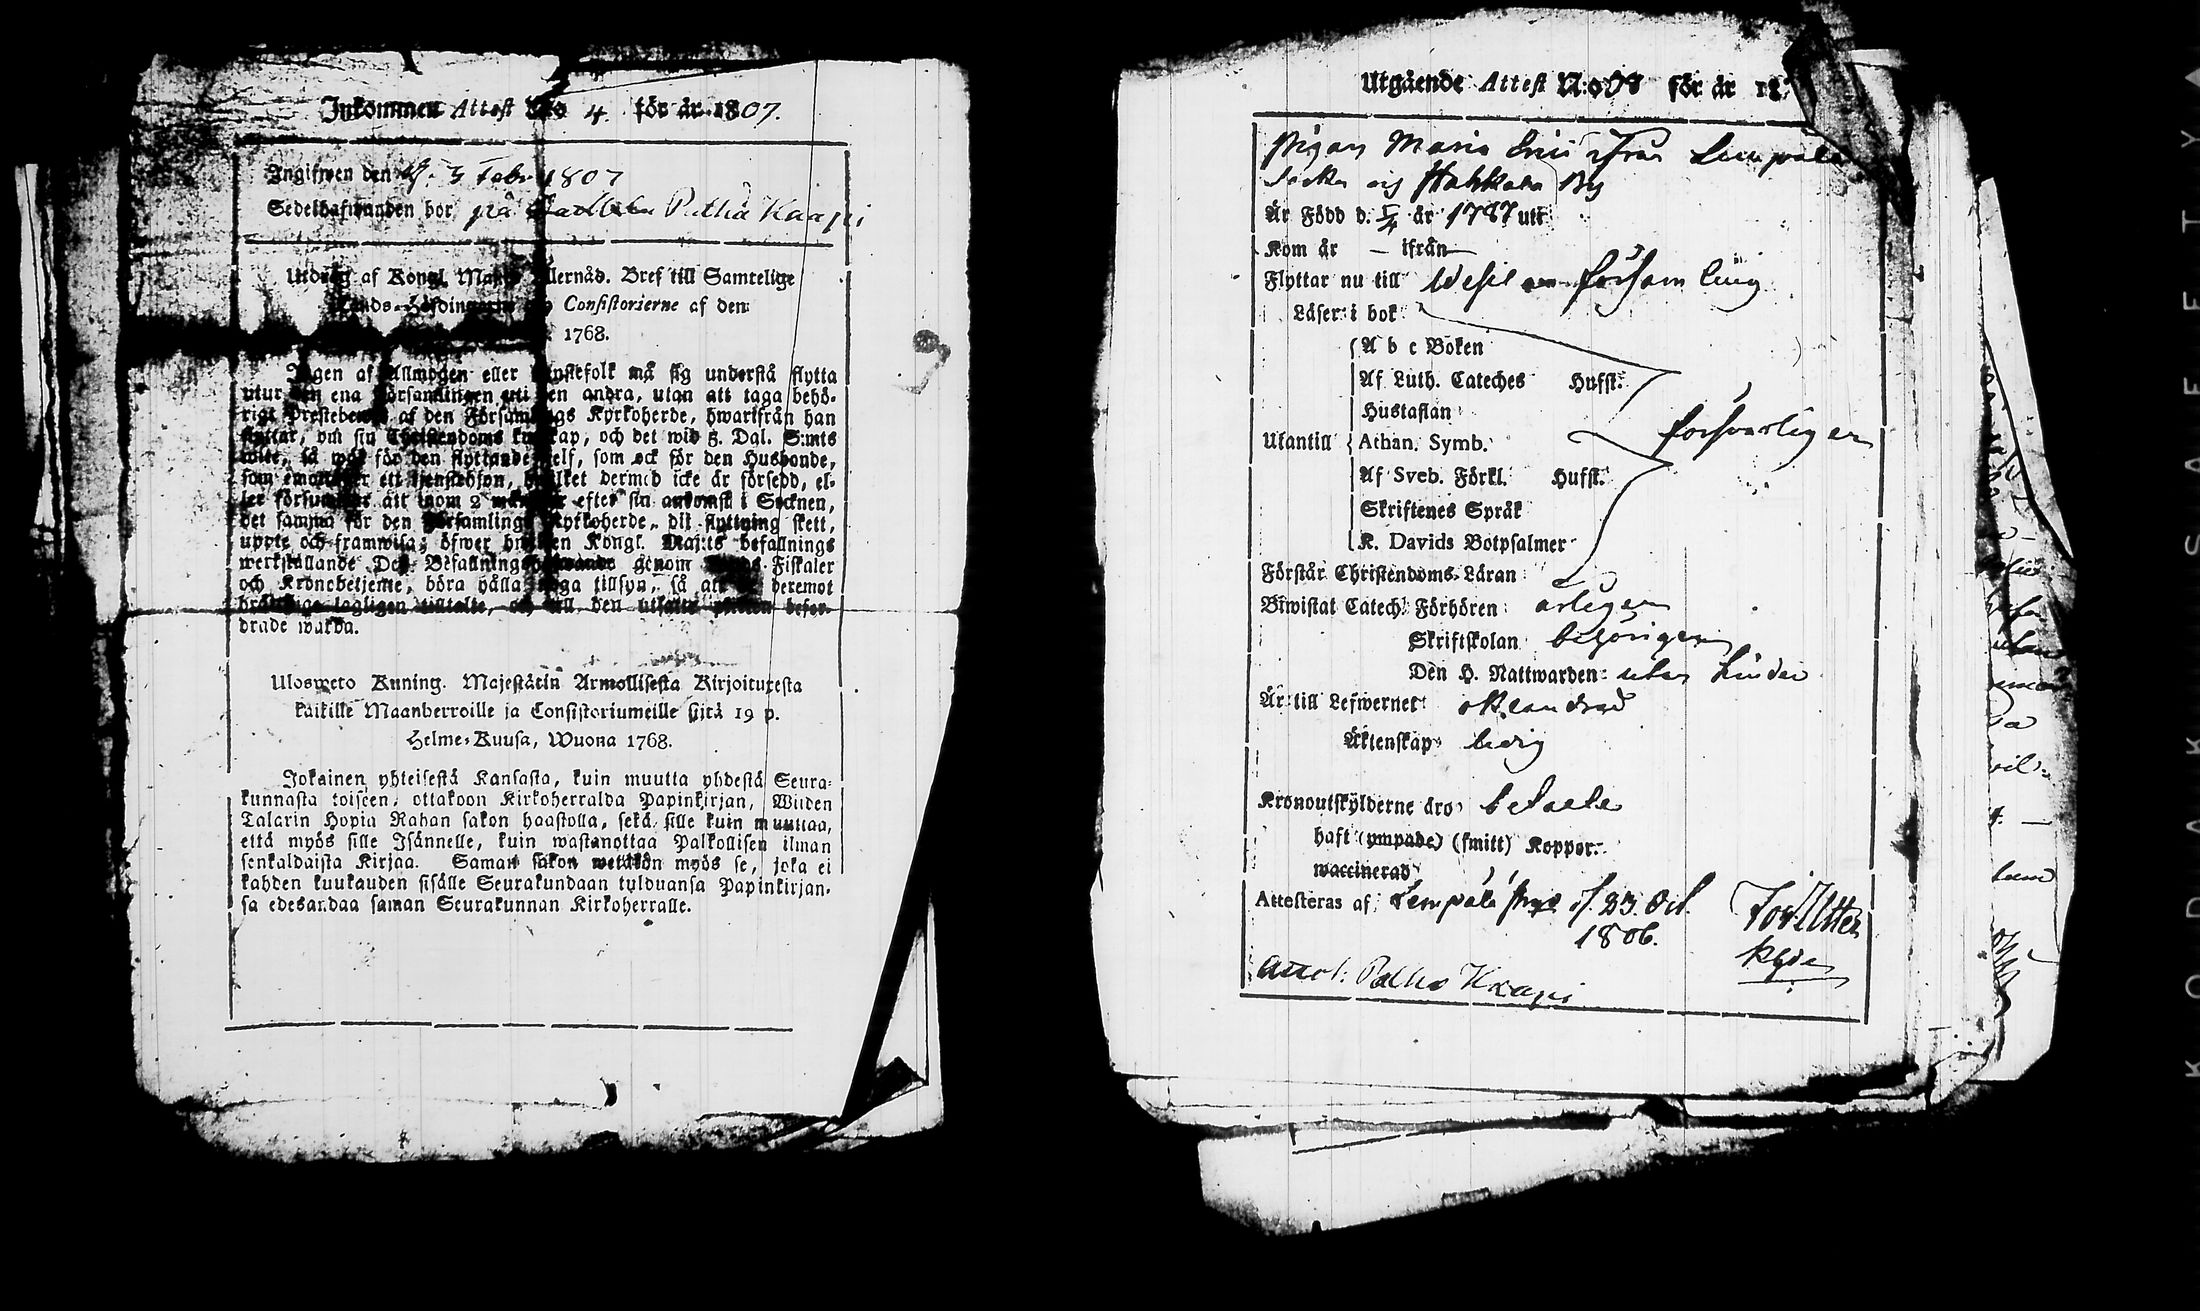 Inkommen Attest No 4. för år 1807.
Ingifwen den 3 Febr 1807
Sedelhafwanden bor på Patha Kaapi
Utdrag af Kongl. Maj:ts Allernåd. Bref till Samtelige
Lands-Höfdingarne Consistorierne af den
1768.
Ingen af Allmogen eller tjenstefolk må sig understå flytta
utur den ena Församlingen uti den andra, utan att taga behö-
rigt Prestebewis af den Församlings Kyrkoherde, hwarifrån han
flyttar, om sin Christendoms kunskap, och det wid 5. Dal. S:mts
wite, så wäl för den flyttande sjelf, som ock för den Husbonde,
som emottager ett tjenstehjon, hwilket dermed icke är försedd, el-
ler försummar att inom 2 månader efter sin ankomst i Socknen,
det samma för den Församlings Kyrkoherde, dit flyttning skett,
uppte och framwisa; öfwer hwilken Kongl. Maj:ts befallnings
werkställande Des Befallningshafwande genom Lands-Fiskaler
och Kronobetjente, böra hålla noga tillsyn, så att deremot
brättslige lagligen tilltalte, och till den utsatte plikten befor-
drade warda.
Uloswето Kuning. Majestätin Armollisesta Kirjoituxesta
kaikille Maanherroille ja Consistoriumeille siitä 19 p.
Helme-Kuusa, Wuona 1768.
Jokainen yhteisestä Kansasta, kuin muutta yhdestä Seura-
kunnasta toiseen, ottakoon Kirkoherralda Papinkirjan, Wiiden
Talarin Hopia Rahan sakon haastolla, sekä sille kuin muuttaa,
että myös sille Isännelle, kuin wastanottaa Palkollisen ilman
senkaldaista Kirjaa. Saman sakon wetäkön myös se, joka ei
kahden kuukauden sisälle Seurakundaan tulduansa Papinkirjan-
sa edesandaa saman Seurakunnan Kirkoherralle.
Utgående Attest N:o 98 för år 18
Pigan Maria ifrån Lempälä
Sockn och Hakkala By
Är Född d. 5/4 år 1787 uti
Kom år — ifrån —
Flyttar nu till Wesil församling
Läser i bok
A b c Boken
Af Luth. Cateches Hufst.
Hustaflan
försvarligen
Utantill Athan. Symb.
Af Sveb. Förkl. Hufst.
Skriftenes Språk
K. Davids Botpsalmer
Förstår Christendoms-Läran
Biwistat Catech. Förhören årligen
Skriftskolan behörigen
Den H. Nattwarden utan hinder
Är till Lefwernet oklandrad
Äktenskap ledig
Kronoutskylderne äro betalte
haft (ympade) (smitt) Koppor.
waccinerad
Attesteras af Lempälä d. 23. Oct.
1806.
Patha Kaapi